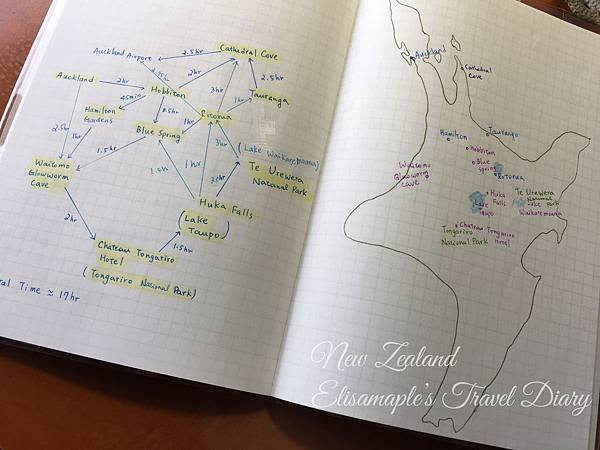 Auckland Airpore
2.5hr
Cathedral Cove
2hr
3hr
2.5hr
Auckland
2hr
Hobbiton
1hr
Tauranga
45min
Hamilton
Gardens
Rotorua
Blue Spring
1hr
2.5hr
1hr
1.5hr
3hr
(Lake Waikaremoana)
Te Urewera
National Park
Waitomo
Glowworm
Cave
1hr
Huka Falls
(Lake
Taupo)
2hr
1.5hr
Chateau Tongariro
Hotel
(Tongariro National Park)
Total Time ≈ 17hr
Auckland
Cathedral
Cove
Hamilton
Tauranga
Hobbiton
Waitomo
Glowworm
cave
Blue
Spring
Rotorua
Huka
Falls
Te Urewera
National
Park
Lake
Taupo
Lake
Waikaremoana
Chateau Tongariro
Hotel
Tongariro
National Park
New Zealand
Elisamaple's Travel Diary